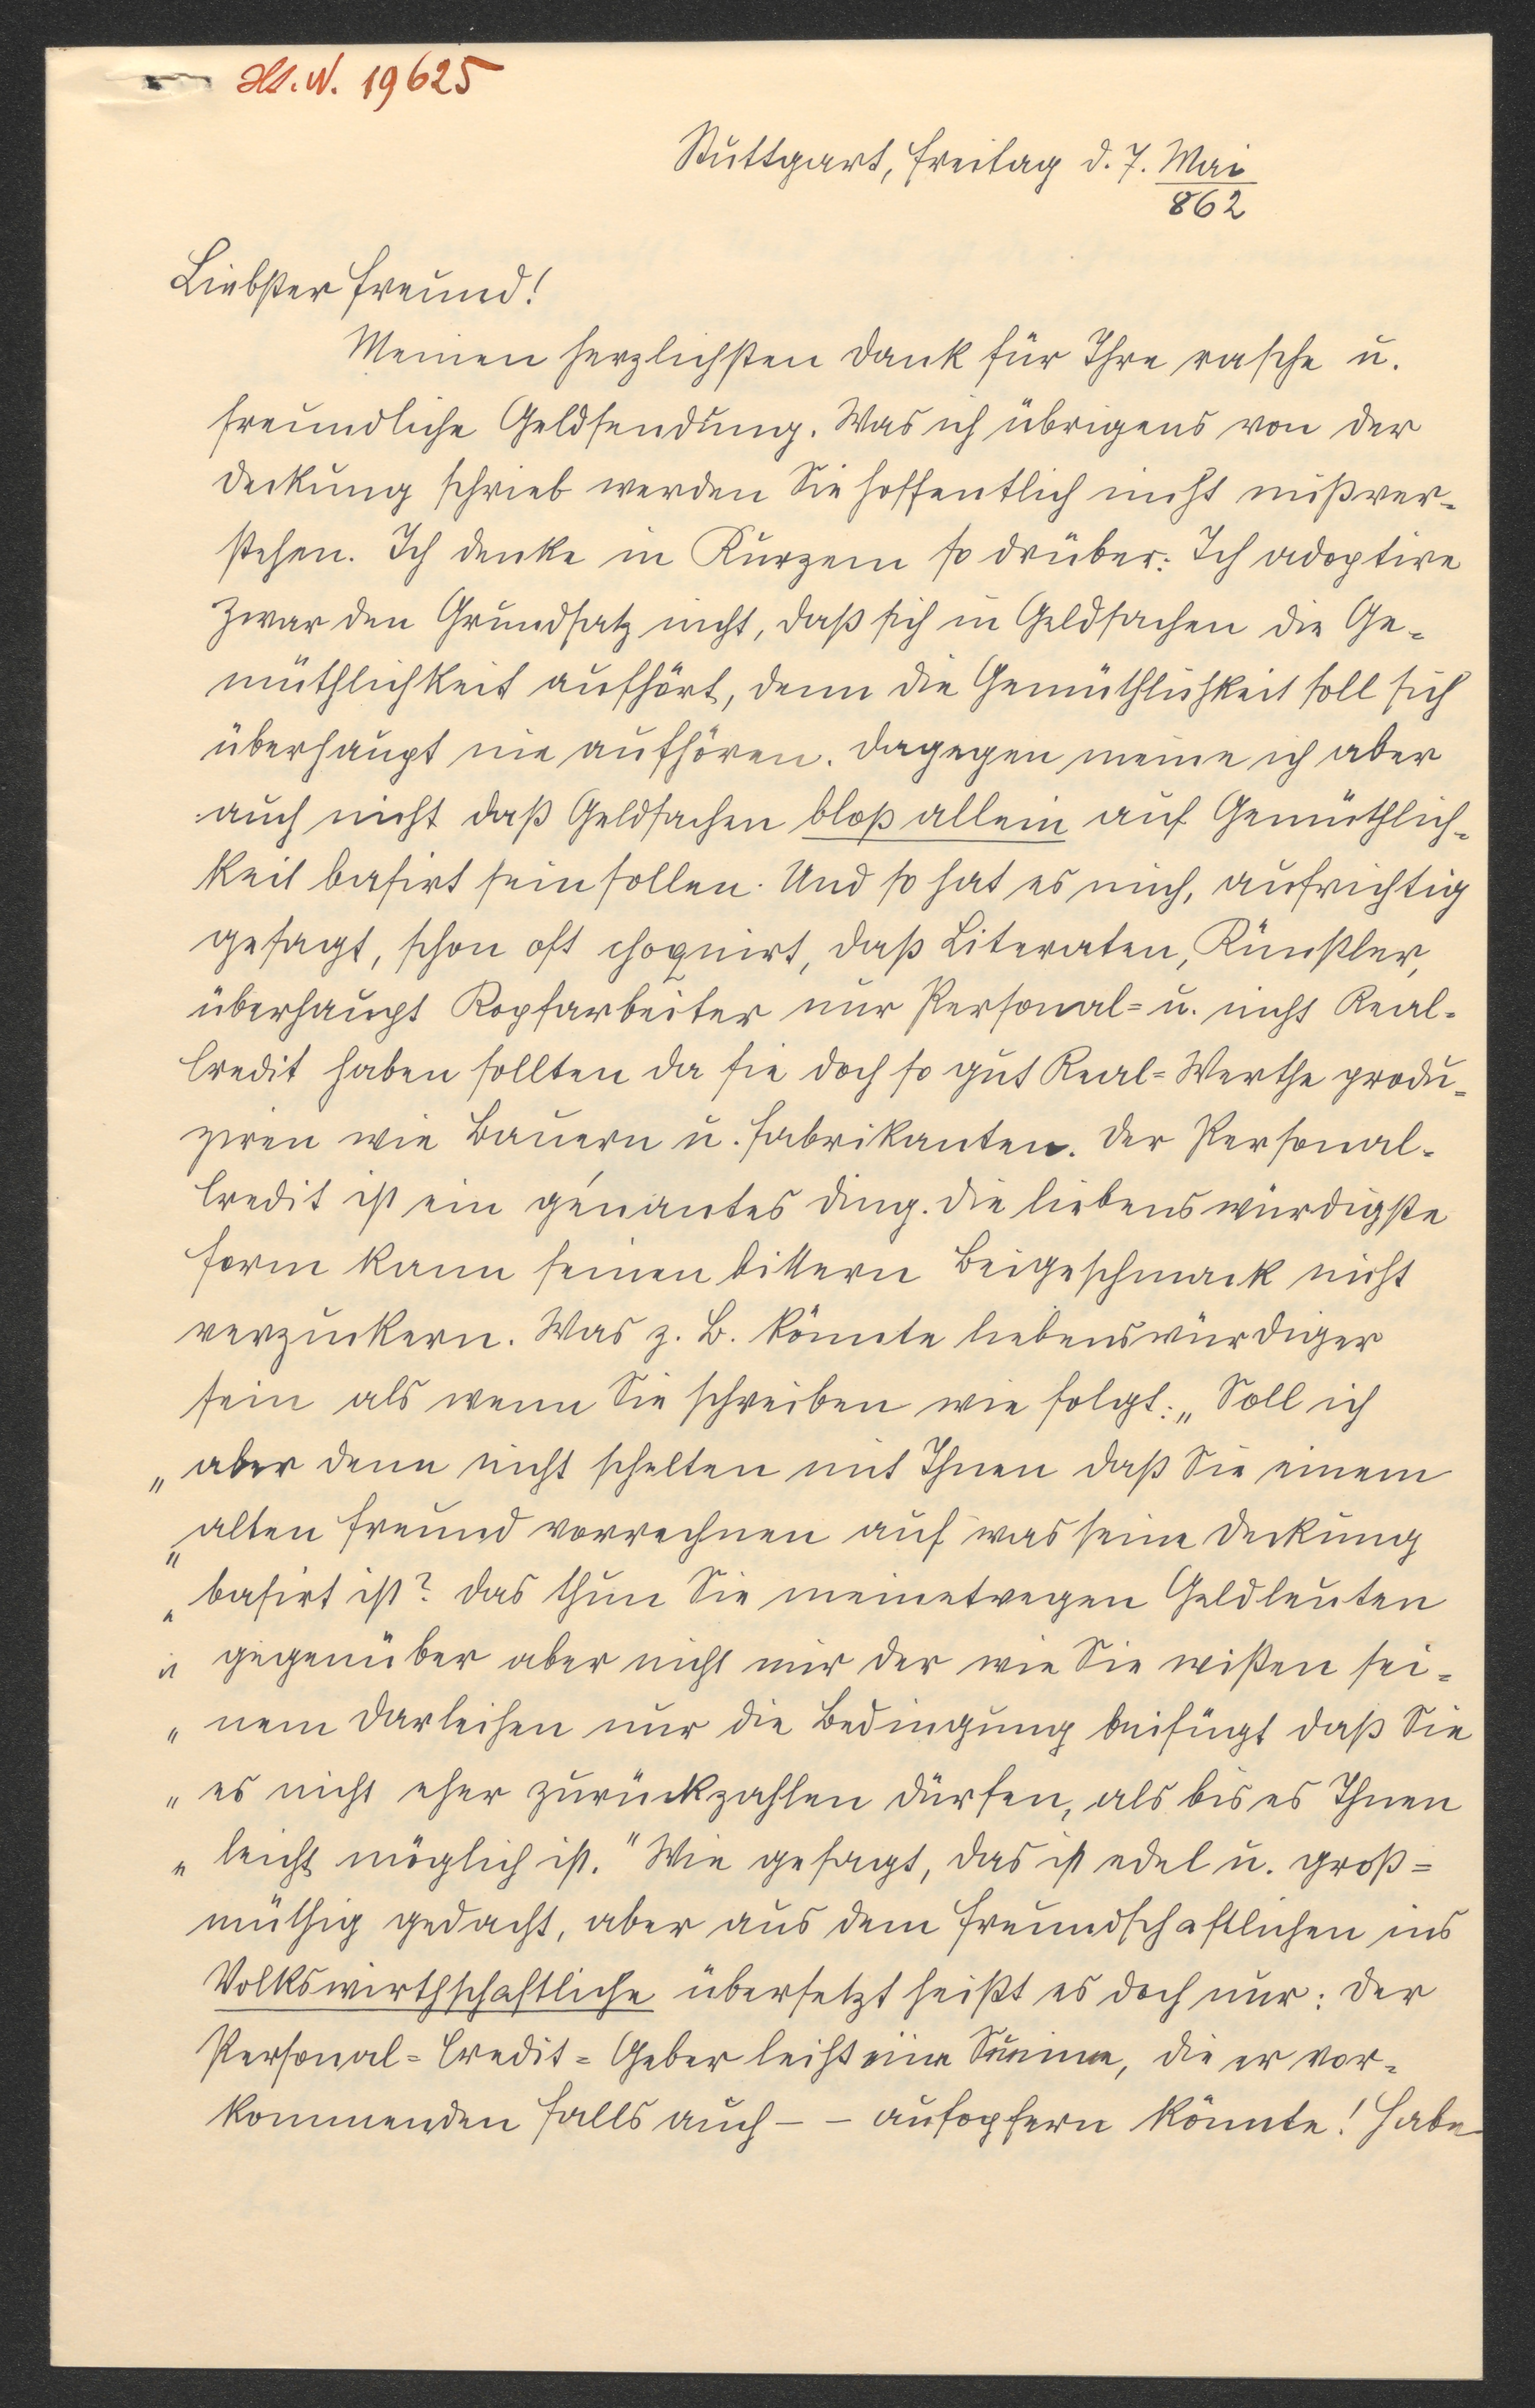 H. N. 19625
Stuttgart, Freitag d. 7. Mai
862
Liebster Freund!
Meinen herzlichsten Dank für Ihre rasche u.
freundliche Geldsendung. Was ich übrigens von der
Deckung schrieb werden Sie hoffentlich nicht mißver-
stehen. Ich denke in Kurzem so drüber: Ich adoptire
zwar den Grundsatz nicht, daß sich in Geldsachen die Ge-
müthlichkeit aufhört, denn die Gemüthlichkeit soll sich
überhaupt nie aufhören. Dagegen meine ich aber
auch nicht daß Geldsachen bloß allein auf Gemüthlich-
keit basirt sein sollen. Und so hat es mich, aufrichtig
gesagt, schon oft choquirt, daß Literaten, Künstler,
überhaupt Kopfarbeiter nur Personal- u. nicht Real-
Credit haben sollten da sie doch so gut Real-Werthe produ-
ziren wie Bauern u. Fabrikanten. Der Personal-
Credit ist ein génantes Ding. Die liebenswürdigste
Form kann seinen bittern Beigeschmack nicht
verzuckern. Was z. B. könnte liebenswürdiger
sein als wenn Sie schreiben wie folgt: „Soll ich
„aber denn nicht schelten mit Ihnen daß Sie einem
„alten Freund vorrechnen auf was seine Deckung
„basirt ist? Das thun Sie meinetwegen Geldleuten
„gegenüber aber nicht mir der wie Sie wißen sei-
„nem Darleihen nur die Bedingung beifügt daß Sie
„es nicht eher zurückzahlen dürfen, als bis es Ihnen
„leicht möglich ist." Wie gesagt, das ist edel u. groß-
müthig gedacht, aber aus dem Freundschaftlichen ins
Volkswirthschaftliche übersetzt heißt es doch nur: Der
Personal-Credit-Geber leiht eine Summe, die er vor-
kommenden Falls auch – – aufopfern könnte! Habe